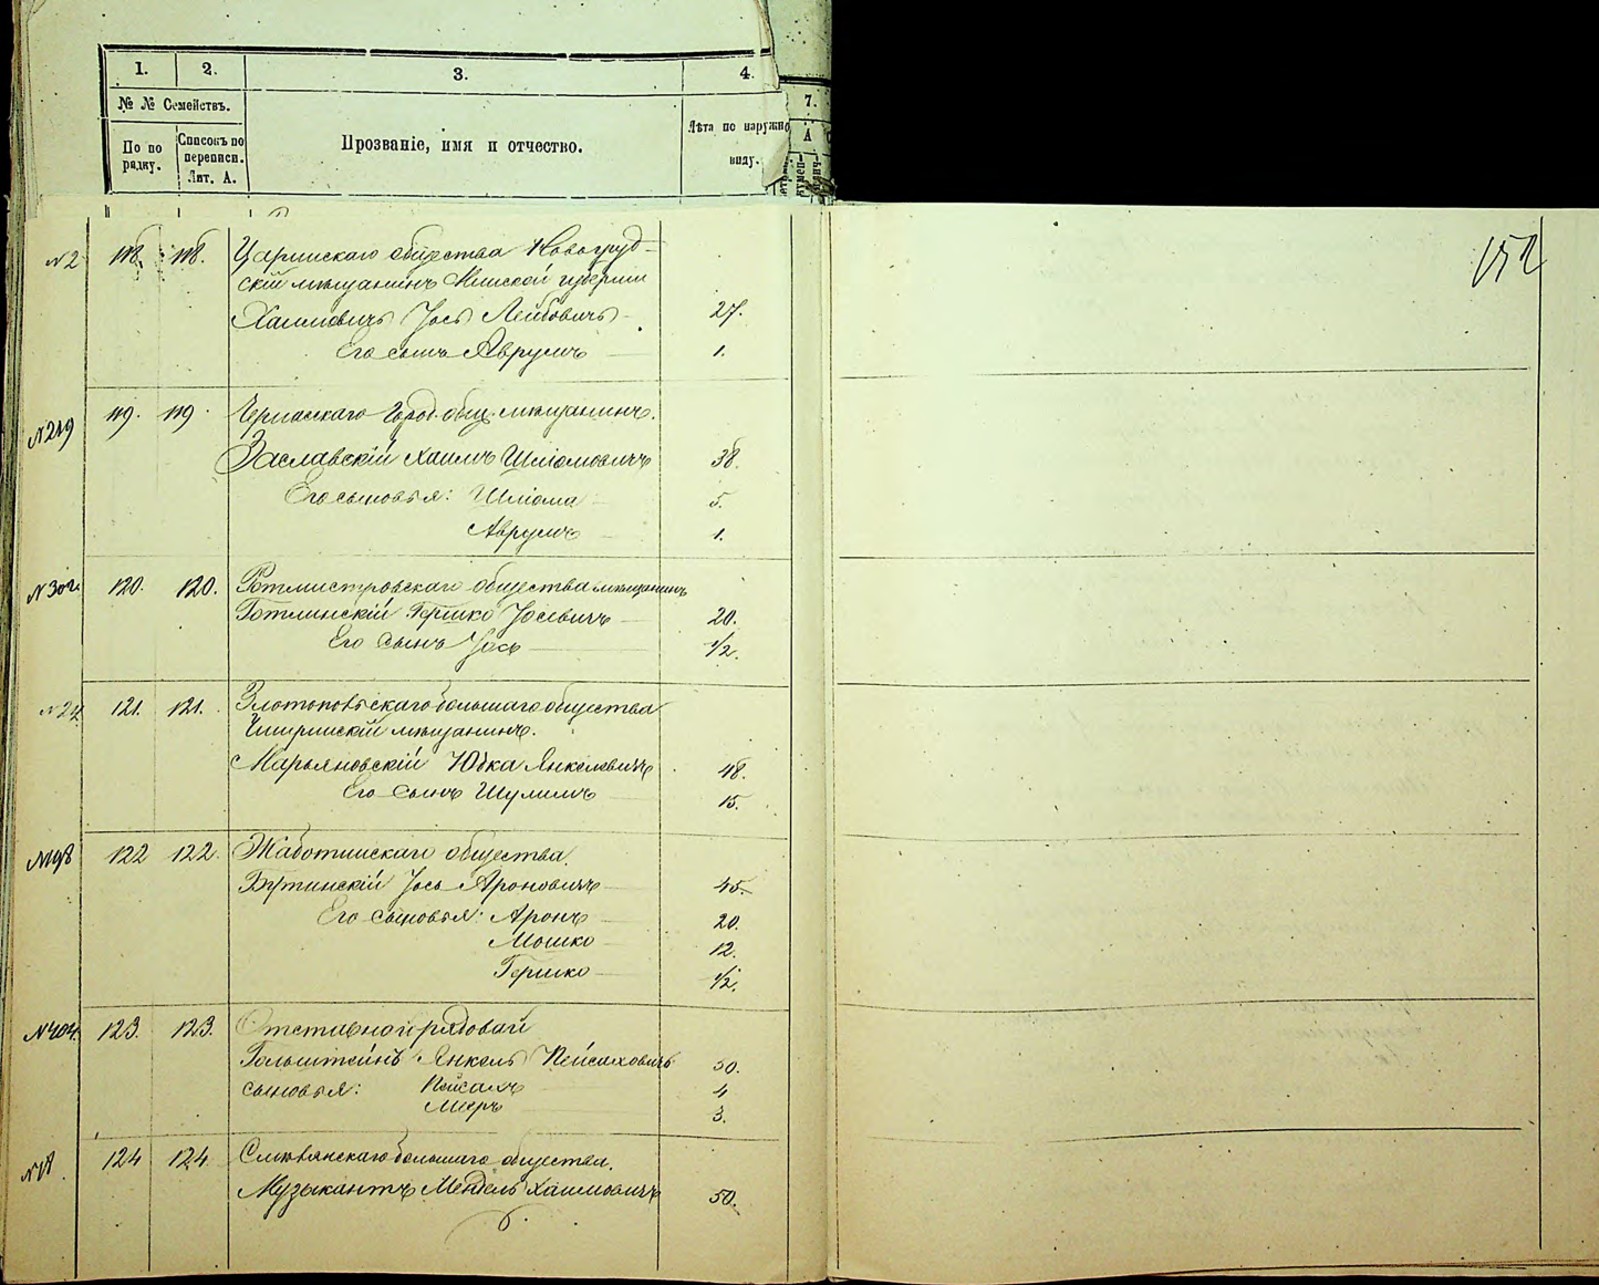 1. 2. 3. 4.
№ № Семействъ.
По по рядку. Списокъ по переписи. Лит. А.
Прозваніе, имя и отчество.
Лѣта по наружно виду.
7.
А
152
№2 118. 118. общества Новогруд-
скій мѣщанинъ Минской губерніи
Хаимовичъ Іось Лейбовичъ 27.
Его сынъ Аврумъ 1.
№219 119. 119. Город. общ. мѣщанинъ.
Заславскій Хаимъ Шліомовичъ 38.
Его сыновья: Шліома 5.
Аврумъ 1.
120. 120. Ротмистровскаго общества мѣщанинъ
Готлинскій Гершко Іосевичъ 20.
Его сынъ Іось 1/2.
№24 121. 121. Златопольскаго большаго общества
мѣщанинъ.
Марьяновскій Юдка Янкелевичъ 48.
Его сынъ Шулимъ 15.
№198 122 122. Жаботинскаго общества.
Іось Ароновичъ 45.
Его сыновья: Аронъ 20.
Мошко 12.
Гершко 1/2.
№404. 123. 123. Отставной рядовой
Гольштейнъ Янкель Пейсаховичъ 50.
сыновья: Пейсахъ 4
Мееръ 3.
№18. 124 124 большаго общества.
Музыкантъ Мендель Хаимовичъ 50.